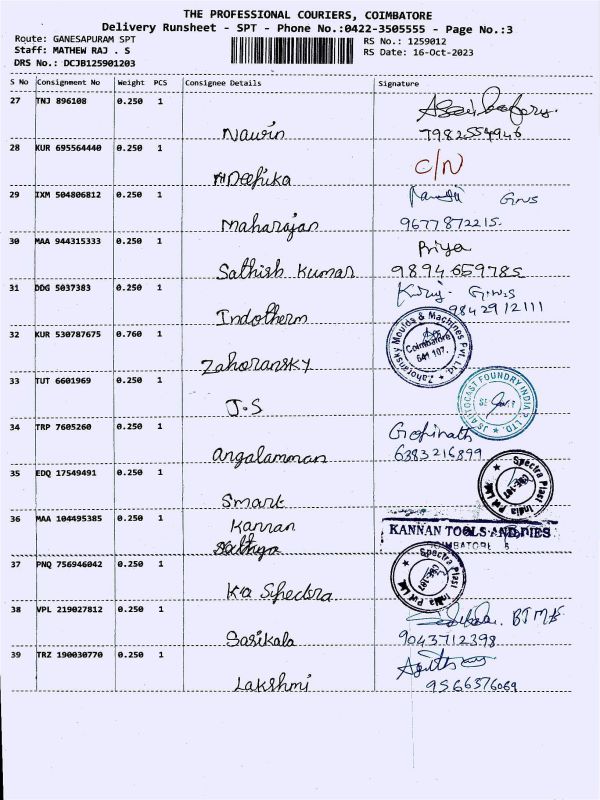 THE PROFESSIONAL COURIERS, COIMBATORE
Delivery Runsheet - SPT - Phone No.:0422-3505555 - Page No.:3
Route: GANESAPURAM SPT
RS No.: 1259012
Staff: MATHEW RAJ . S
RS Date: 16-Oct-2023
DRS No.: DCJB125901203
S No Consignment No Weight PCS Consignee Details Signature
27 TNJ 896108 0.250 1
Nawin 7982554946
28 KUR 695564440 0.250 1
Deepika C/N
29 IXM 504806812 0.250 1
Maharajan 9677872215.
30 MAA 944315333 0.250 1 Priya
Sathish Kumar 9894659785
31 DDG 5037383 0.250 1
Indotherm 9842912111
32 KUR 530787675 0.760 1
Zahoransky Moulds & Machines Pvt. Ltd.
Coimbatore
641 107.
Zahoransky
33 TUT 6601969 0.250 1
JS AUTOCAST FOUNDRY INDIA P. LTD.
J.S
34 TRP 7605260 0.250 1 Gopinath
Angalamman 6383216899
35 EDQ 17549491 0.250 1
Spectra Plast India Pvt Ltd.
CBE-107
Smart
36 MAA 104495385 0.250 1
Kannan
KANNAN TOOLS AND DIES
COIMBATORE
37 PNQ 756946042 0.250 1
Spectra Plast India Pvt Ltd.
CBE-107
Ka Spectra
38 VPL 219027812 0.250 1
Sasikala 9043712398
39 TRZ 190030770 0.250 1
Lakshmi 9566376069